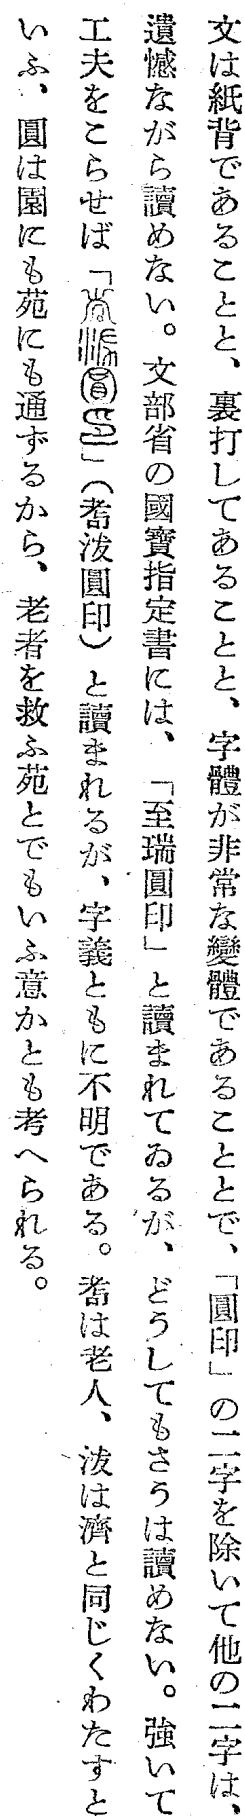 文は紙背であることと、裏打してあることと、字體が非常な變體であることとで、「圓印」の二字を除いて他の二字は、
遺憾ながら讀めない。文部省の國寶指定書には、「至瑞圓印」と讀まれてゐるが、どうしてもさうは讀めない。強いて
工夫をこらせば「圓印」（耆泼圓印）と讀まれるが、字義ともに不明である。耆は老人、泼は濟と同じくわたすと
いふ、圓は園にも苑にも通ずるから、老者を救ふ苑とでもいふ意かとも考へられる。